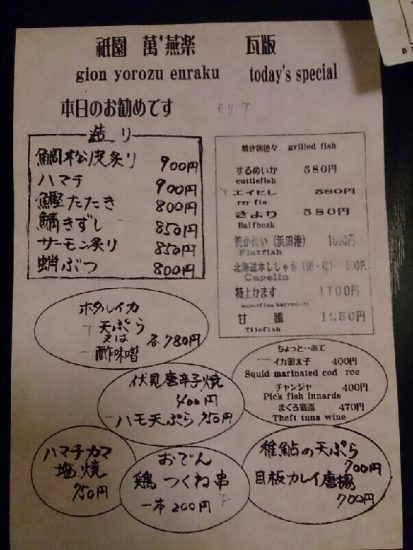 祇園 萬燕楽 瓦版
gion yorozu enraku today's special
本日のお勧めです
造り
鯛松皮炙り 900円
ハマチ 900円
鰹たたき 800円
鯖きずし 850円
サーモン炙り 850円
蛸ぶつ 800円
焼き物色々 grilled fish
するめいか 580円
cuttlefish
エイヒレ 580円
ray fin
さより 580円
Halfbeak
笹かれい(浜田港)
Flatfish
Capelin
特上かます 1100円
甘鯛 1250円
Tilefish
ホタルイカ
天ぷら
又は 各780円
酢味噌
ちょっと…あて
イカ明太子 400円
Squid marinated cod roe
チャンジャ 400円
Pick fish innards
まぐろ酒盗 470円
Theft tuna wine
伏見唐辛子焼
400円
ハモ天ぷら 950円
ハマチカマ
塩焼
950円
おでん
鶏つくね串
一本200円
稚鮎の天ぷら
900円
目板カレイ唐揚
900円